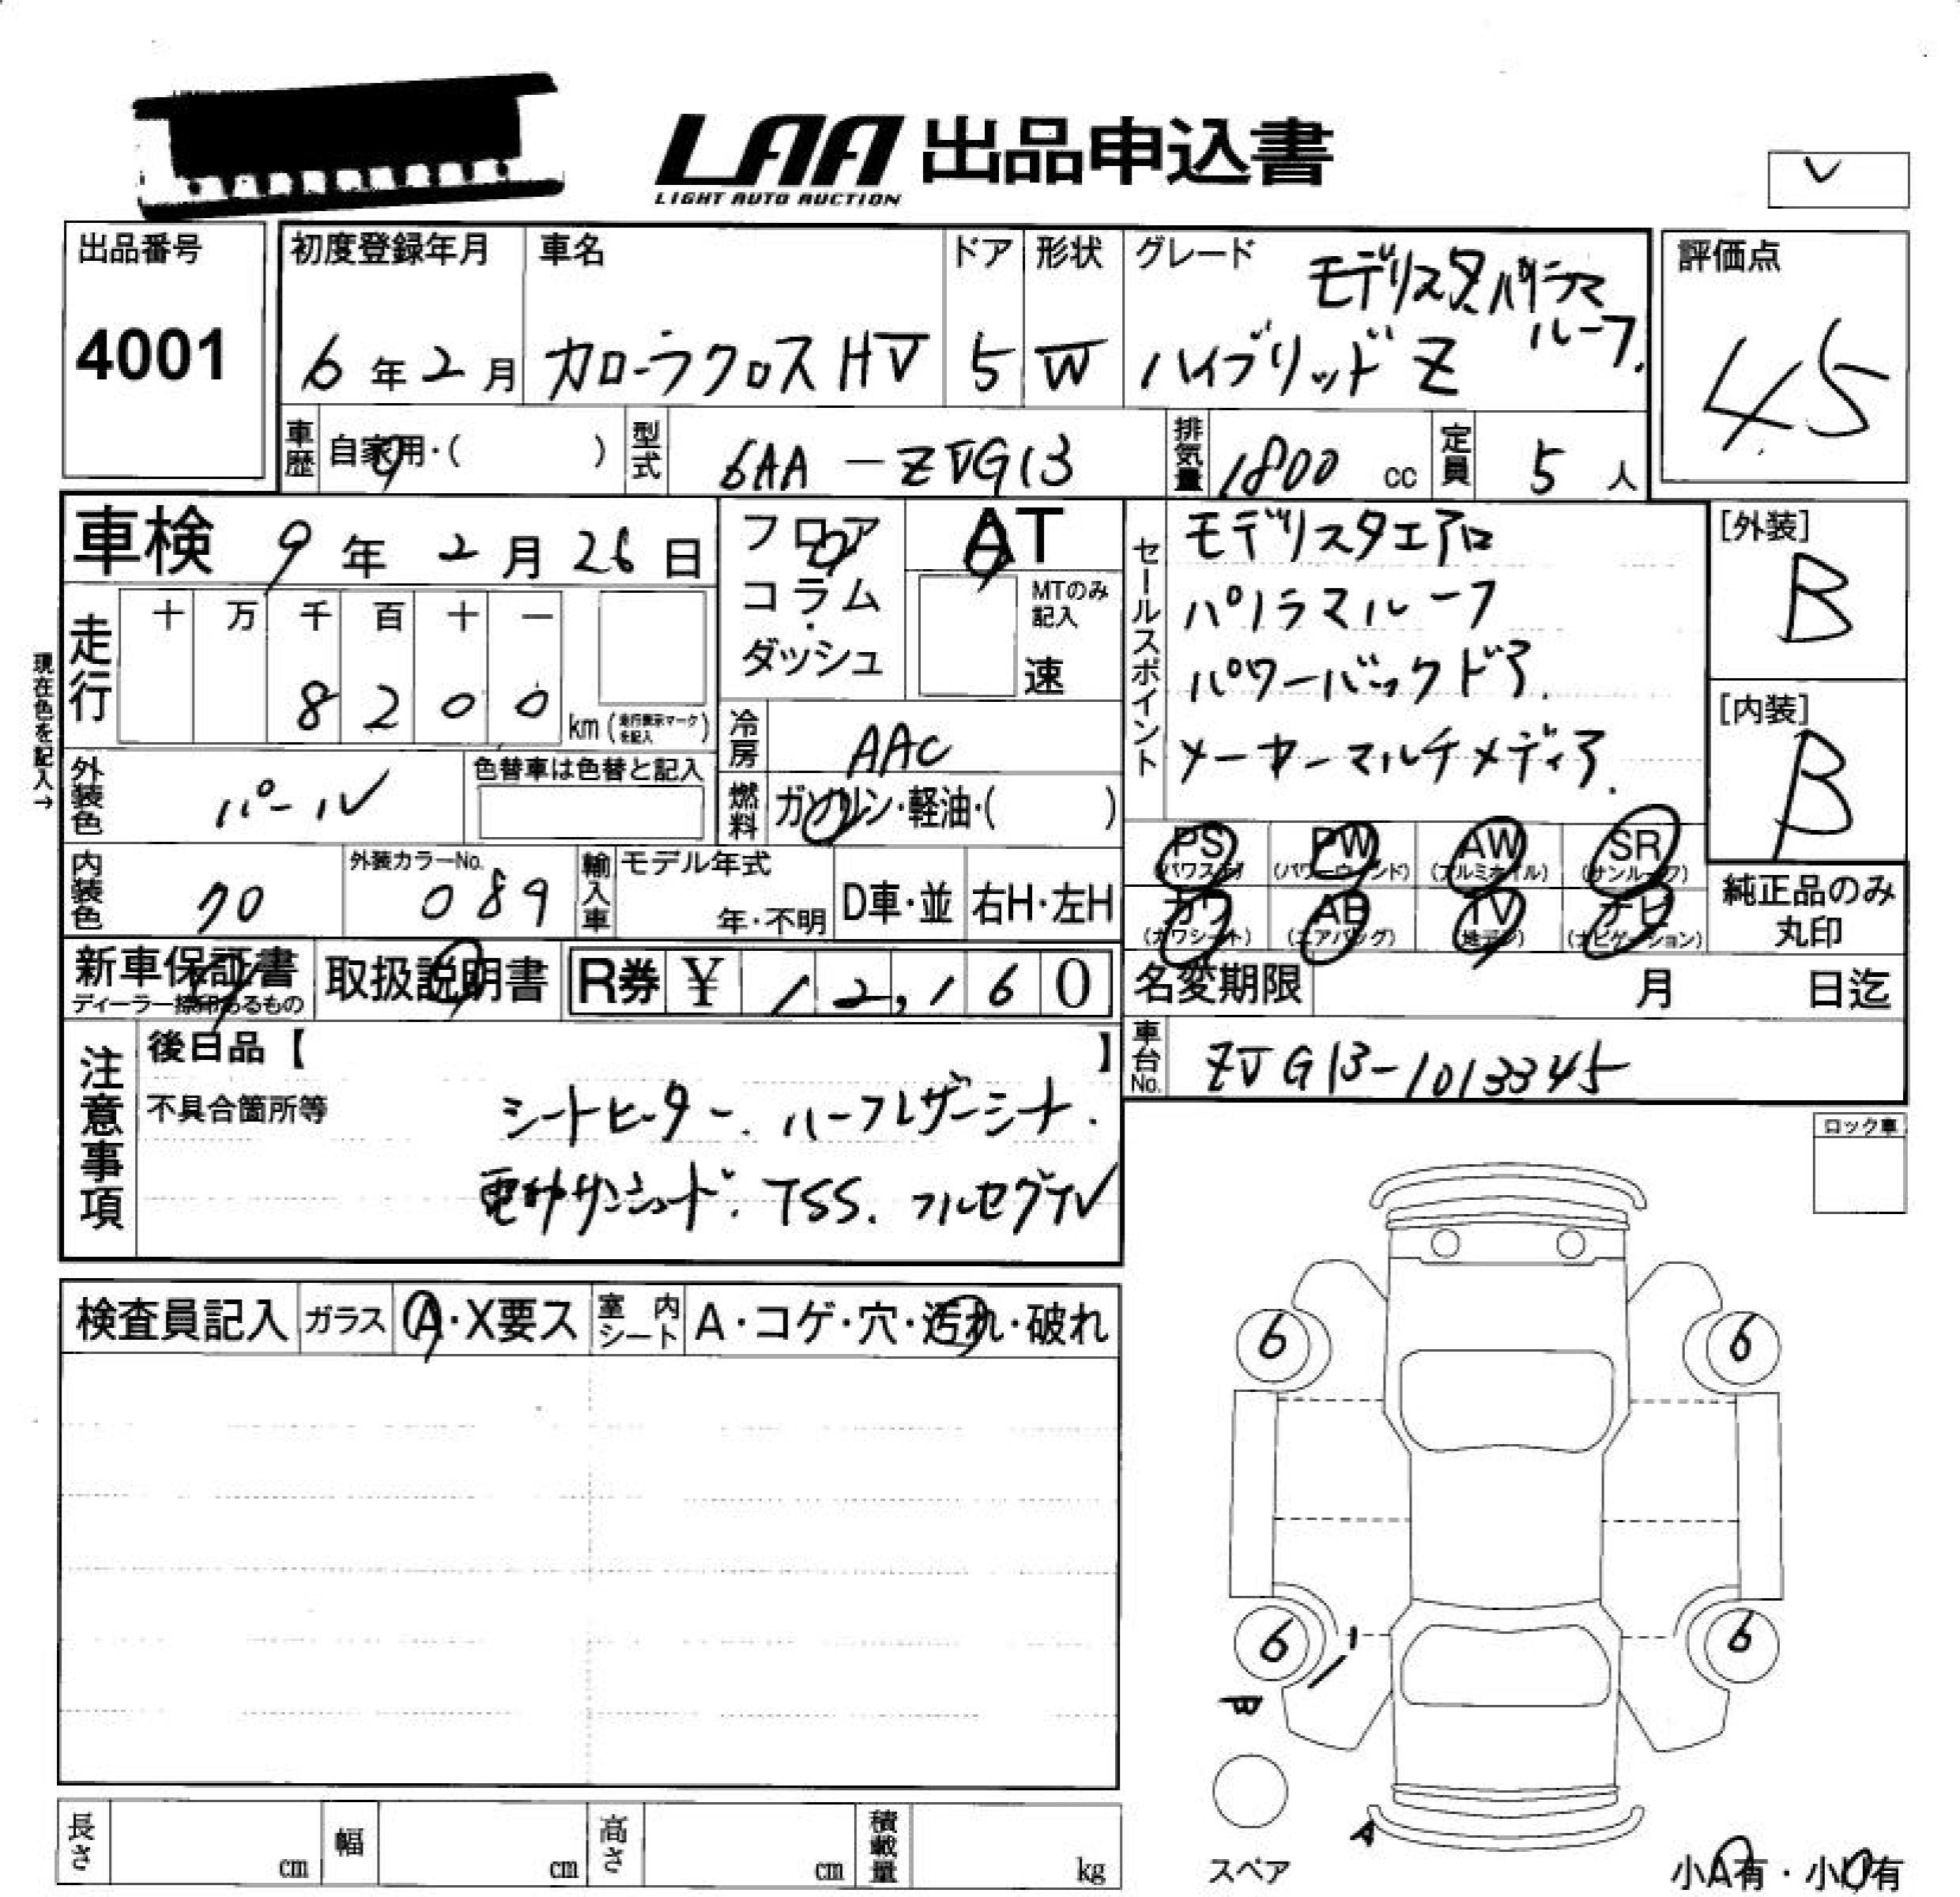 LAA 出品申込書
LIGHT AUTO AUCTION
出品番号
4001
初度登録年月
6年2月
車名
カローラクロスHV
ドア
5
形状
W
グレード
モデリスタ パノラマルーフ
ハイブリッドZ
評価点
4.5
車歴 自家用・( )
型式 6AA-ZVG13
排気量 1800 cc
定員 5 人
車検 9年2月26日
フロア
コラム
ダッシュ
AT
MTのみ記入
速
セールスポイント
モデリスタエアロ
パノラマルーフ
パワーバックドア.
メーカーマルチメディア.
[外装]
B
[内装]
B
現在色を記入→
走行
十 万 千 百 十 一
8 2 0 0
km (走行表示マークを記入)
冷房 AAC
外装色 パール
色替車は色替と記入
燃料 ガソリン・軽油・( )
PS (パワステ) PW (パワーウィンド) AW (アルミホイル) SR (サンルーフ)
カワ (カワシート) AB (エアバッグ) TV (地デジ) ナビ (ナビゲーション)
純正品のみ丸印
内装色 クロ
外装カラーNo. 089
輸入車
モデル年式
年・不明
D車・並
右H・左H
新車保証書
ディーラー捺印あるもの
取扱説明書
R券 ¥ 12,160
名変期限 月 日迄
車台No. ZVG13-1013345
注意事項
後日品【 】
不具合箇所等
シートヒーター. ハーフレザーシート.
電動サンシェード. TSS. フルセグTV
ロック車
検査員記入 ガラス A・X要ス 室内シート A・コゲ・穴・汚れ・破れ
6 6
6 6
B
A
スペア
小A有・小U有
長さ cm
幅 cm
高さ cm
積載量 kg